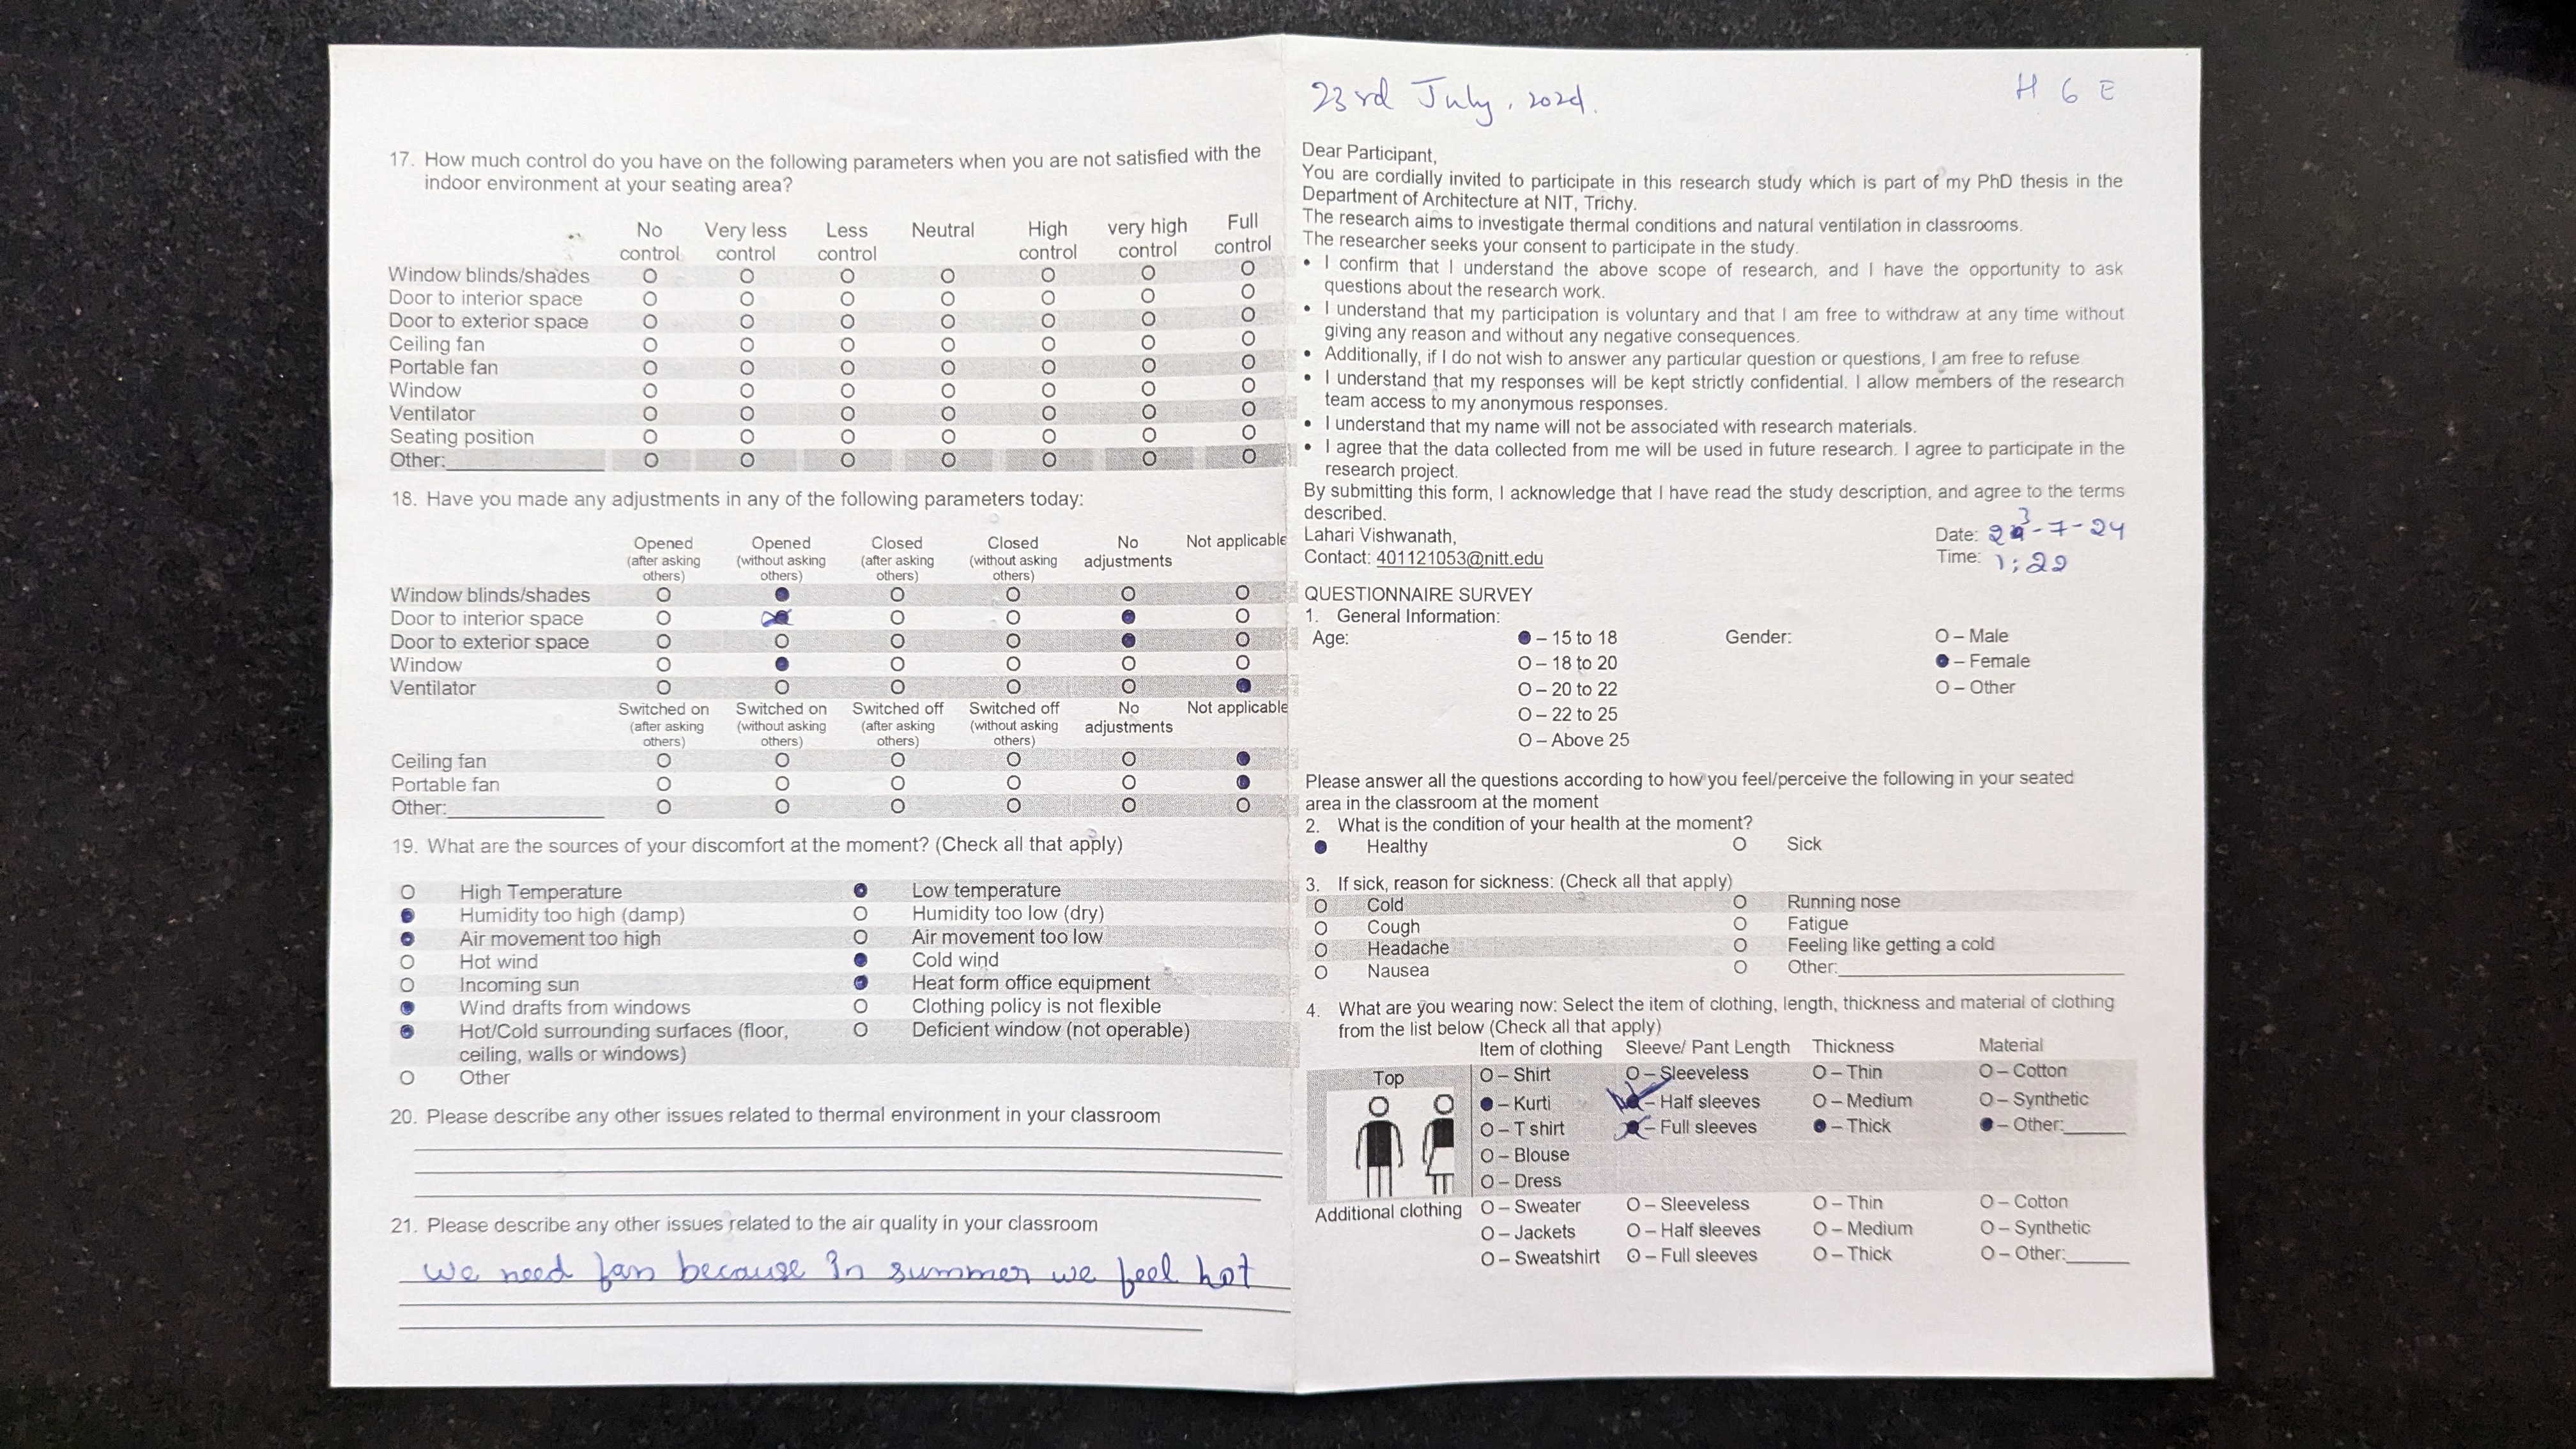 17. How much control do you have on the following parameters when you are not satisfied with the
indoor environment at your seating area?
No control Very less control Less control Neutral High control very high control Full control
Window blinds/shades O O O O O O O
Door to interior space O O O O O O O
Door to exterior space O O O O O O O
Ceiling fan O O O O O O O
Portable fan O O O O O O O
Window O O O O O O O
Ventilator O O O O O O O
Seating position O O O O O O O
Other:__________ O O O O O O O
18. Have you made any adjustments in any of the following parameters today:
Opened (after asking others) Opened (without asking others) Closed (after asking others) Closed (without asking others) No adjustments Not applicable
Window blinds/shades O ● O O O O
Door to interior space O ● O O ● O
Door to exterior space O O O O ● O
Window O ● O O O O
Ventilator O O O O O ●
Switched on (after asking others) Switched on (without asking others) Switched off (after asking others) Switched off (without asking others) No adjustments Not applicable
Ceiling fan O O O O O ●
Portable fan O O O O O ●
Other:__________ O O O O O O
19. What are the sources of your discomfort at the moment? (Check all that apply)
O High Temperature ● Low temperature
● Humidity too high (damp) O Humidity too low (dry)
● Air movement too high O Air movement too low
O Hot wind ● Cold wind
O Incoming sun ● Heat form office equipment
● Wind drafts from windows O Clothing policy is not flexible
● Hot/Cold surrounding surfaces (floor, O Deficient window (not operable)
ceiling, walls or windows)
O Other
20. Please describe any other issues related to thermal environment in your classroom
21. Please describe any other issues related to the air quality in your classroom
we need fan because in summer we feel hot
23rd July, 2024. H 6 E
Dear Participant,
You are cordially invited to participate in this research study which is part of my PhD thesis in the
Department of Architecture at NIT, Trichy.
The research aims to investigate thermal conditions and natural ventilation in classrooms.
The researcher seeks your consent to participate in the study.
• I confirm that I understand the above scope of research, and I have the opportunity to ask
questions about the research work.
• I understand that my participation is voluntary and that I am free to withdraw at any time without
giving any reason and without any negative consequences.
• Additionally, if I do not wish to answer any particular question or questions, I am free to refuse
• I understand that my responses will be kept strictly confidential. I allow members of the research
team access to my anonymous responses.
• I understand that my name will not be associated with research materials.
• I agree that the data collected from me will be used in future research. I agree to participate in the
research project.
By submitting this form, I acknowledge that I have read the study description, and agree to the terms
described.
Lahari Vishwanath, Date: 23-7-24
Contact: 401121053@nitt.edu Time: 1:22
QUESTIONNAIRE SURVEY
1. General Information:
Age: ● – 15 to 18 Gender: O – Male
O – 18 to 20 ● – Female
O – 20 to 22 O – Other
O – 22 to 25
O – Above 25
Please answer all the questions according to how you feel/perceive the following in your seated
area in the classroom at the moment
2. What is the condition of your health at the moment?
● Healthy O Sick
3. If sick, reason for sickness: (Check all that apply)
O Cold O Running nose
O Cough O Fatigue
O Headache O Feeling like getting a cold
O Nausea O Other:__________
4. What are you wearing now: Select the item of clothing, length, thickness and material of clothing
from the list below (Check all that apply)
Item of clothing Sleeve/ Pant Length Thickness Material
Top O – Shirt O – Sleeveless O – Thin O – Cotton
● – Kurti ● – Half sleeves O – Medium O – Synthetic
O – T shirt ● – Full sleeves ● – Thick ● – Other:______
O – Blouse
O – Dress
Additional clothing O – Sweater O – Sleeveless O – Thin O – Cotton
O – Jackets O – Half sleeves O – Medium O – Synthetic
O – Sweatshirt O – Full sleeves O – Thick O – Other:______